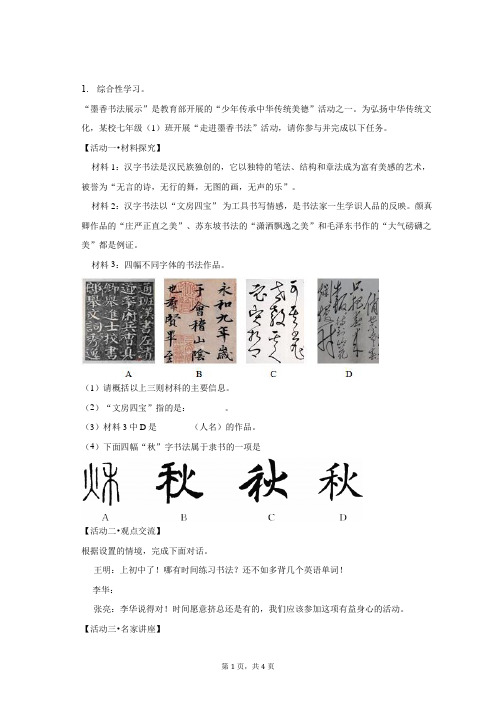 1. 综合性学习。
“墨香书法展示”是教育部开展的“少年传承中华传统美德”活动之一。为弘扬中华传统文
化，某校七年级（1）班开展“走进墨香书法”活动，请你参与并完成以下任务。
【活动一•材料探究】
材料 1：汉字书法是汉民族独创的，它以独特的笔法、结构和章法成为富有美感的艺术，
被誉为“无言的诗，无行的舞，无图的画，无声的乐”。
材料 2：汉字书法以“文房四宝” 为工具书写情感，是书法家一生学识人品的反映。颜真
卿作品的“庄严正直之美”、苏东坡书法的“潇洒飘逸之美”和毛泽东书作的“大气磅礴之
美”都是例证。
材料 3：四幅不同字体的书法作品。
永和九年歲
于會稽山陰
也羣賢畢至
A B C D
（1）请概括以上三则材料的主要信息。
（2）“文房四宝”指的是：________ 。
（3）材料 3 中 D 是 ________（人名）的作品。
（4）下面四幅“秋”字书法属于隶书的一项是
秋 秋 秋 秋
A B C D
【活动二•观点交流】
根据设置的情境，完成下面对话。
王明：上初中了！哪有时间练习书法？还不如多背几个英语单词！
李华：
张亮：李华说得对！时间愿意挤总还是有的，我们应该参加这项有益身心的活动。
【活动三•名家讲座】
第 1 页，共 4 页